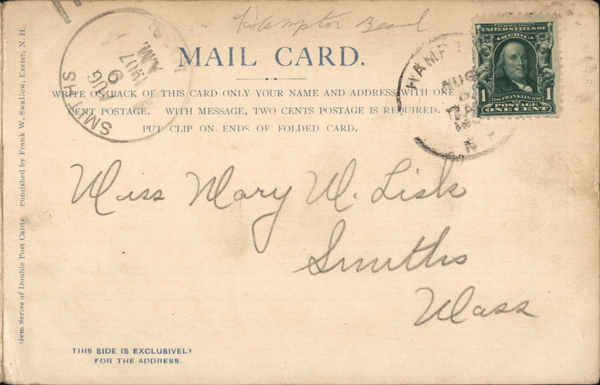 Hampton Beach
MAIL CARD.
WRITE ON BACK OF THIS CARD ONLY YOUR NAME AND ADDRESS WITH ONE
CENT POSTAGE. WITH MESSAGE, TWO CENTS POSTAGE IS REQUIRED.
PUT CLIP ON ENDS OF FOLDED CARD.
SMITHS
AUG
9
A.M.
1907
HAMPT
AUG
N
UNITED STATES OF
AMERICA
1 1
FRANKLIN
POSTAGE
ONE CENT
Miss Mary W. Lisk
Smiths
Mass
Gem Series of Double Post Cards. Published by Frank W. Swallow, Exeter, N. H.
THIS SIDE IS EXCLUSIVELY
FOR THE ADDRESS.